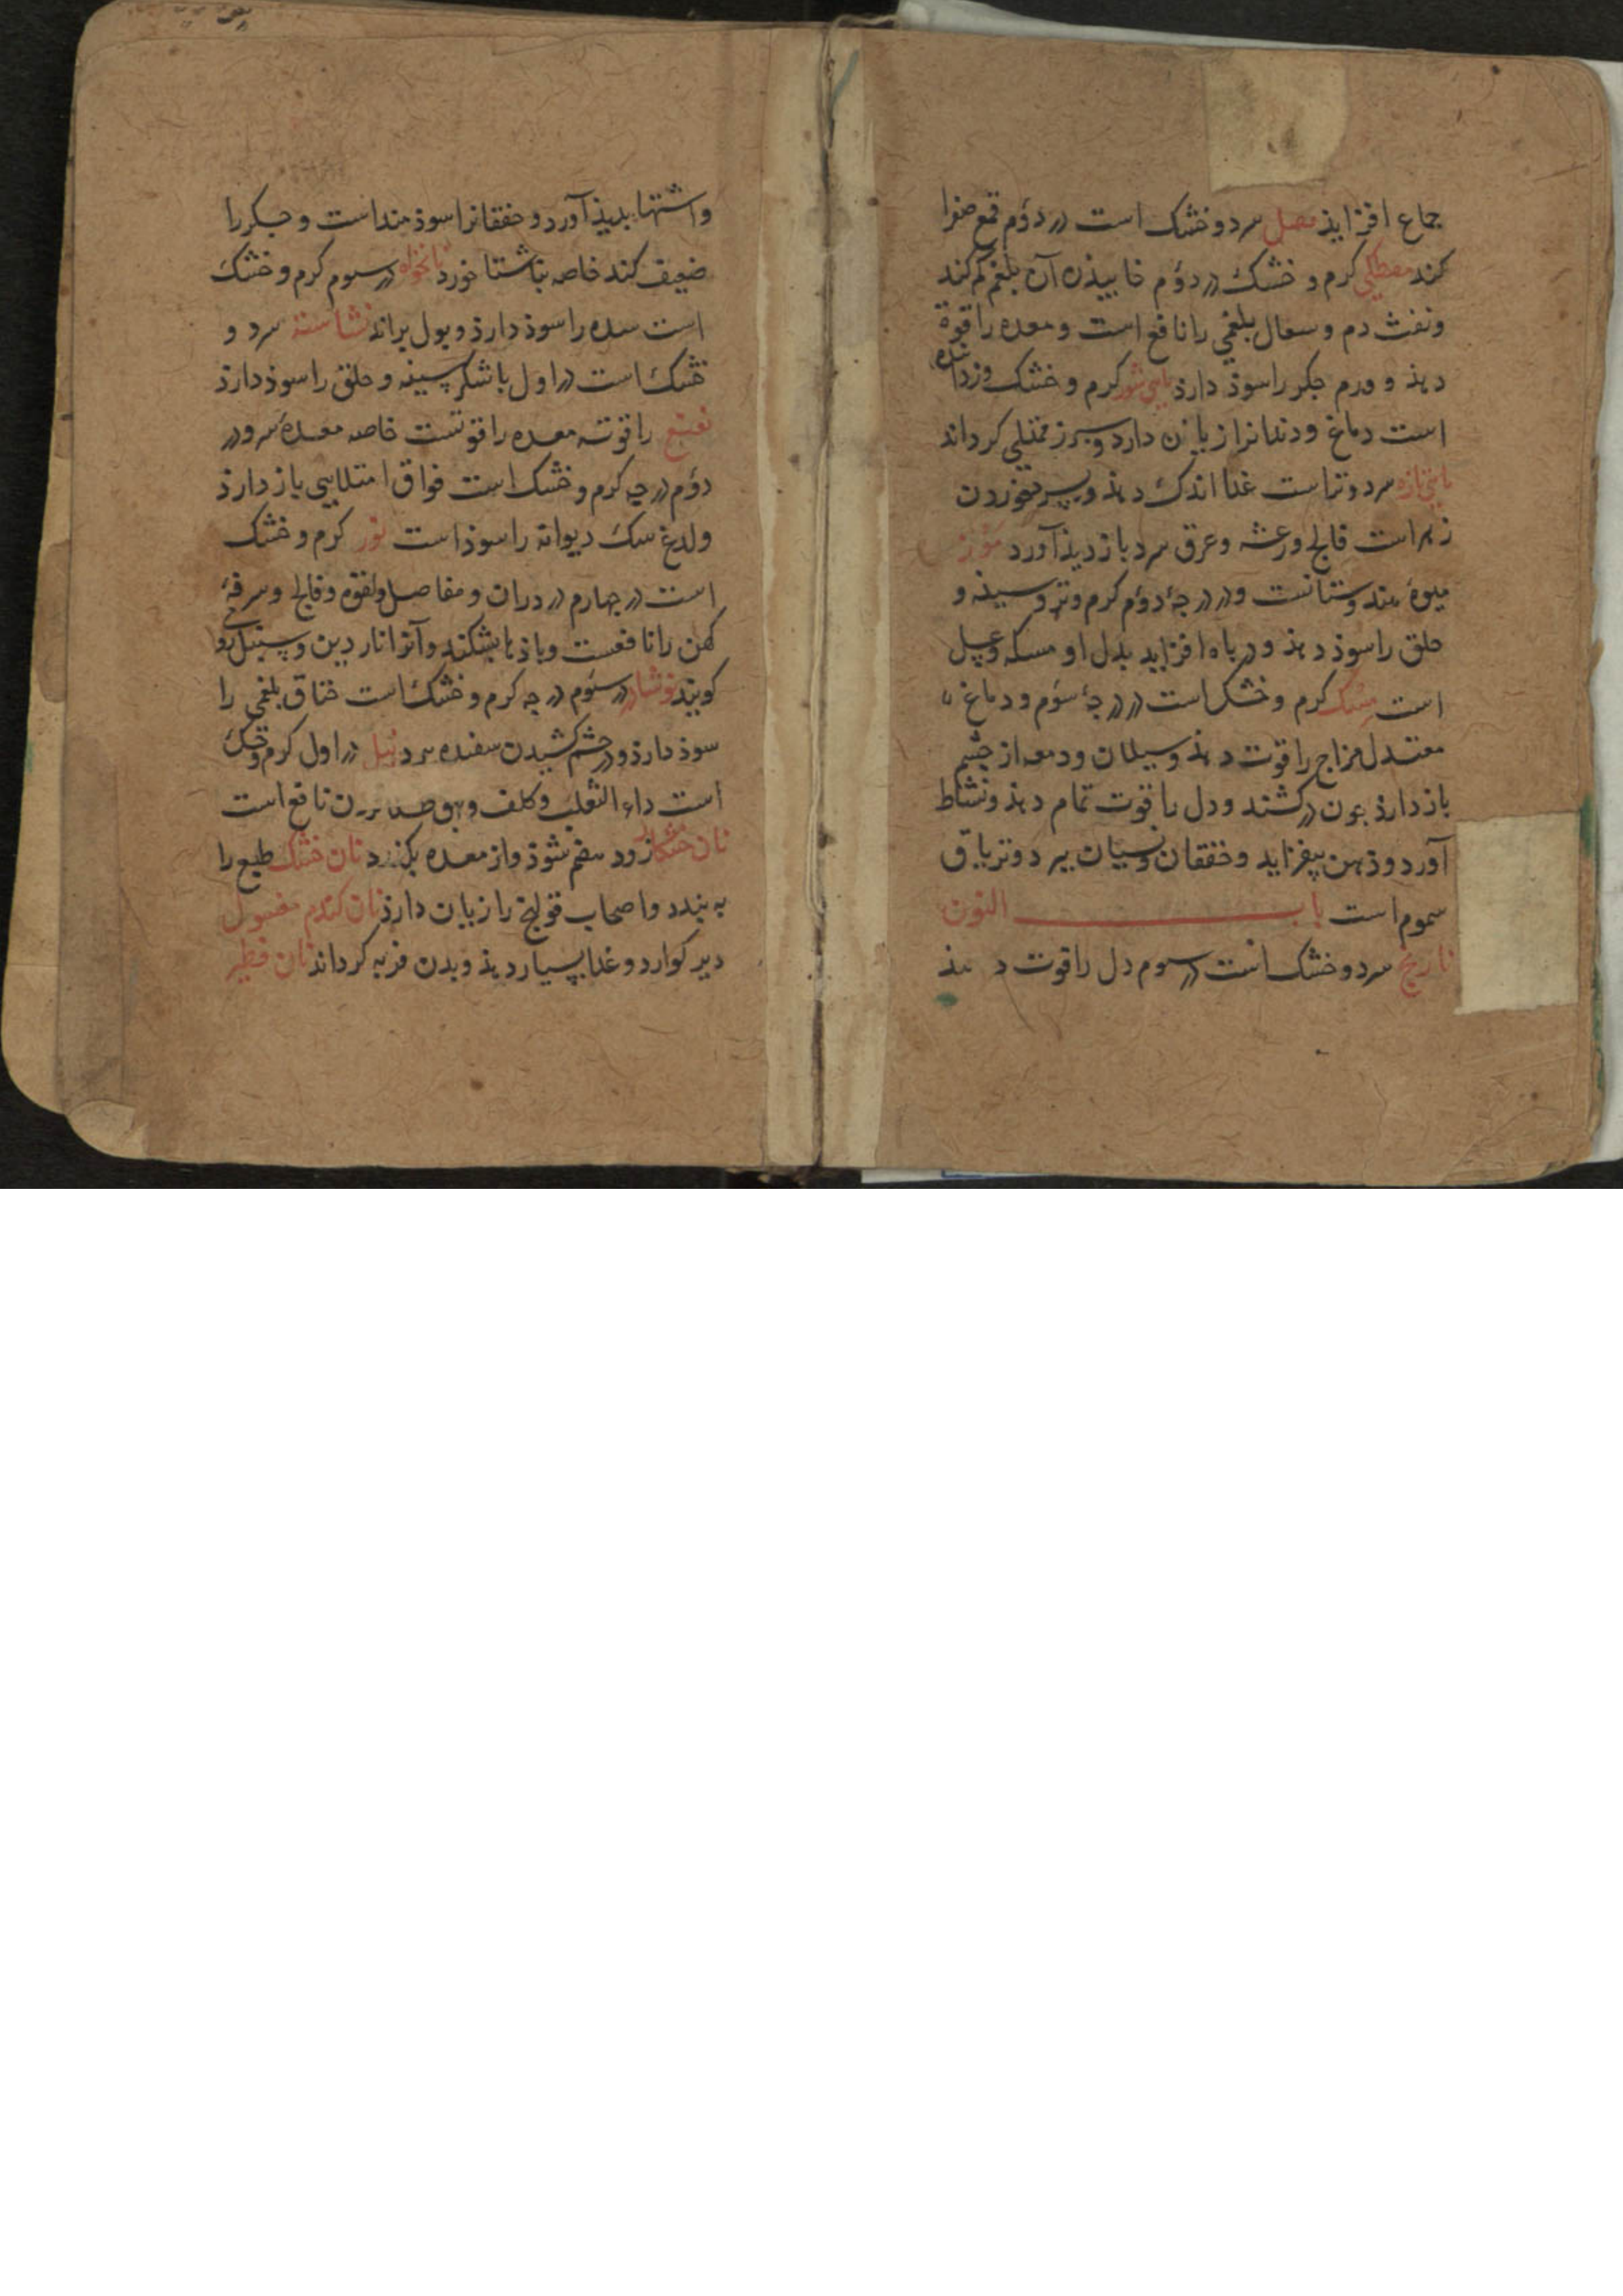 جماع افزاید مصل سرد و خشک است در دؤم قمع صفرا
کند مصطکی کرم و خشک در دؤم خاییذن آن بلغم کم کند
و نفث دم و سعال بلغمی را نافع است و معده را قوة
دهذ و ورم جکر را سوذ دارذ ماهی شور کرم و خشک
است دماغ و دندانرا زیان دارد و سپرز ممتلی کرداند
ماهی تازه سرد و تر است غذا اندک دهذ و خوردن
زهر است فالج و رعشه و عرق سرد بازدیذ آورد موز
میوهٔ هندوستانست و در درجهٔ دؤم کرم و تر و سینه و
حلق را سوذ دهذ و در باه افزاید بدل او مسکه و عسل
است مشک کرم و خشک است در درجهٔ سؤم و دماغ
معتدل مزاج را قوت دهذ و سیلان و دمعه از چشم
باز دارذ چون در کشند و دل را قوت تمام دهذ و نشاط
آورد و ذهن بیفزاید و خفقان و نسیان ببرد و تریاق
سموم است باب النون
نارنج سرد و خشک است در سوم دل را قوت دهذ
و اشتها بدیذ آورد و خفقانرا سوذمند است و جکر را
ضعیف کند خاصه بناشتا خورد نانخواه در سوم کرم و خشک
است سده را سوذ دارذ و بول براند نشاسته سرد و
خشک است در اول با شکر سینه و حلق را سوذ دارذ
نعنع را قوته معده را قوتست خاصه معدهٔ سرد در
دؤم درجه کرم و خشک است فواق امتلایی باز دارذ
و لدغ سک دیوانه را سوذ است کرم و خشک
است در چهارم در دران و مفاصل و لقوه و فالج و سرفهٔ
کهن را نافعست و باذها بشکند و آنرا ناردین و سنبل
کویند نوشادر در سؤم درجه کرم و خشک است خناق بلغمی را
سوذ دارذ و در چشم کشیدن سفیده ببرد نیل در اول کرم و خشک
است داء الثعلب و کلف و بهق نافع است
نان خشکار زود هضم شوذ و از معده بکذرد نان خشک طبع را
ببندد و اصحاب قولنج را زیان دارذ نان کندم مغسول
دیر کوارد و غذا بسیار دهذ و بدن فربه کرداند نان فطیر